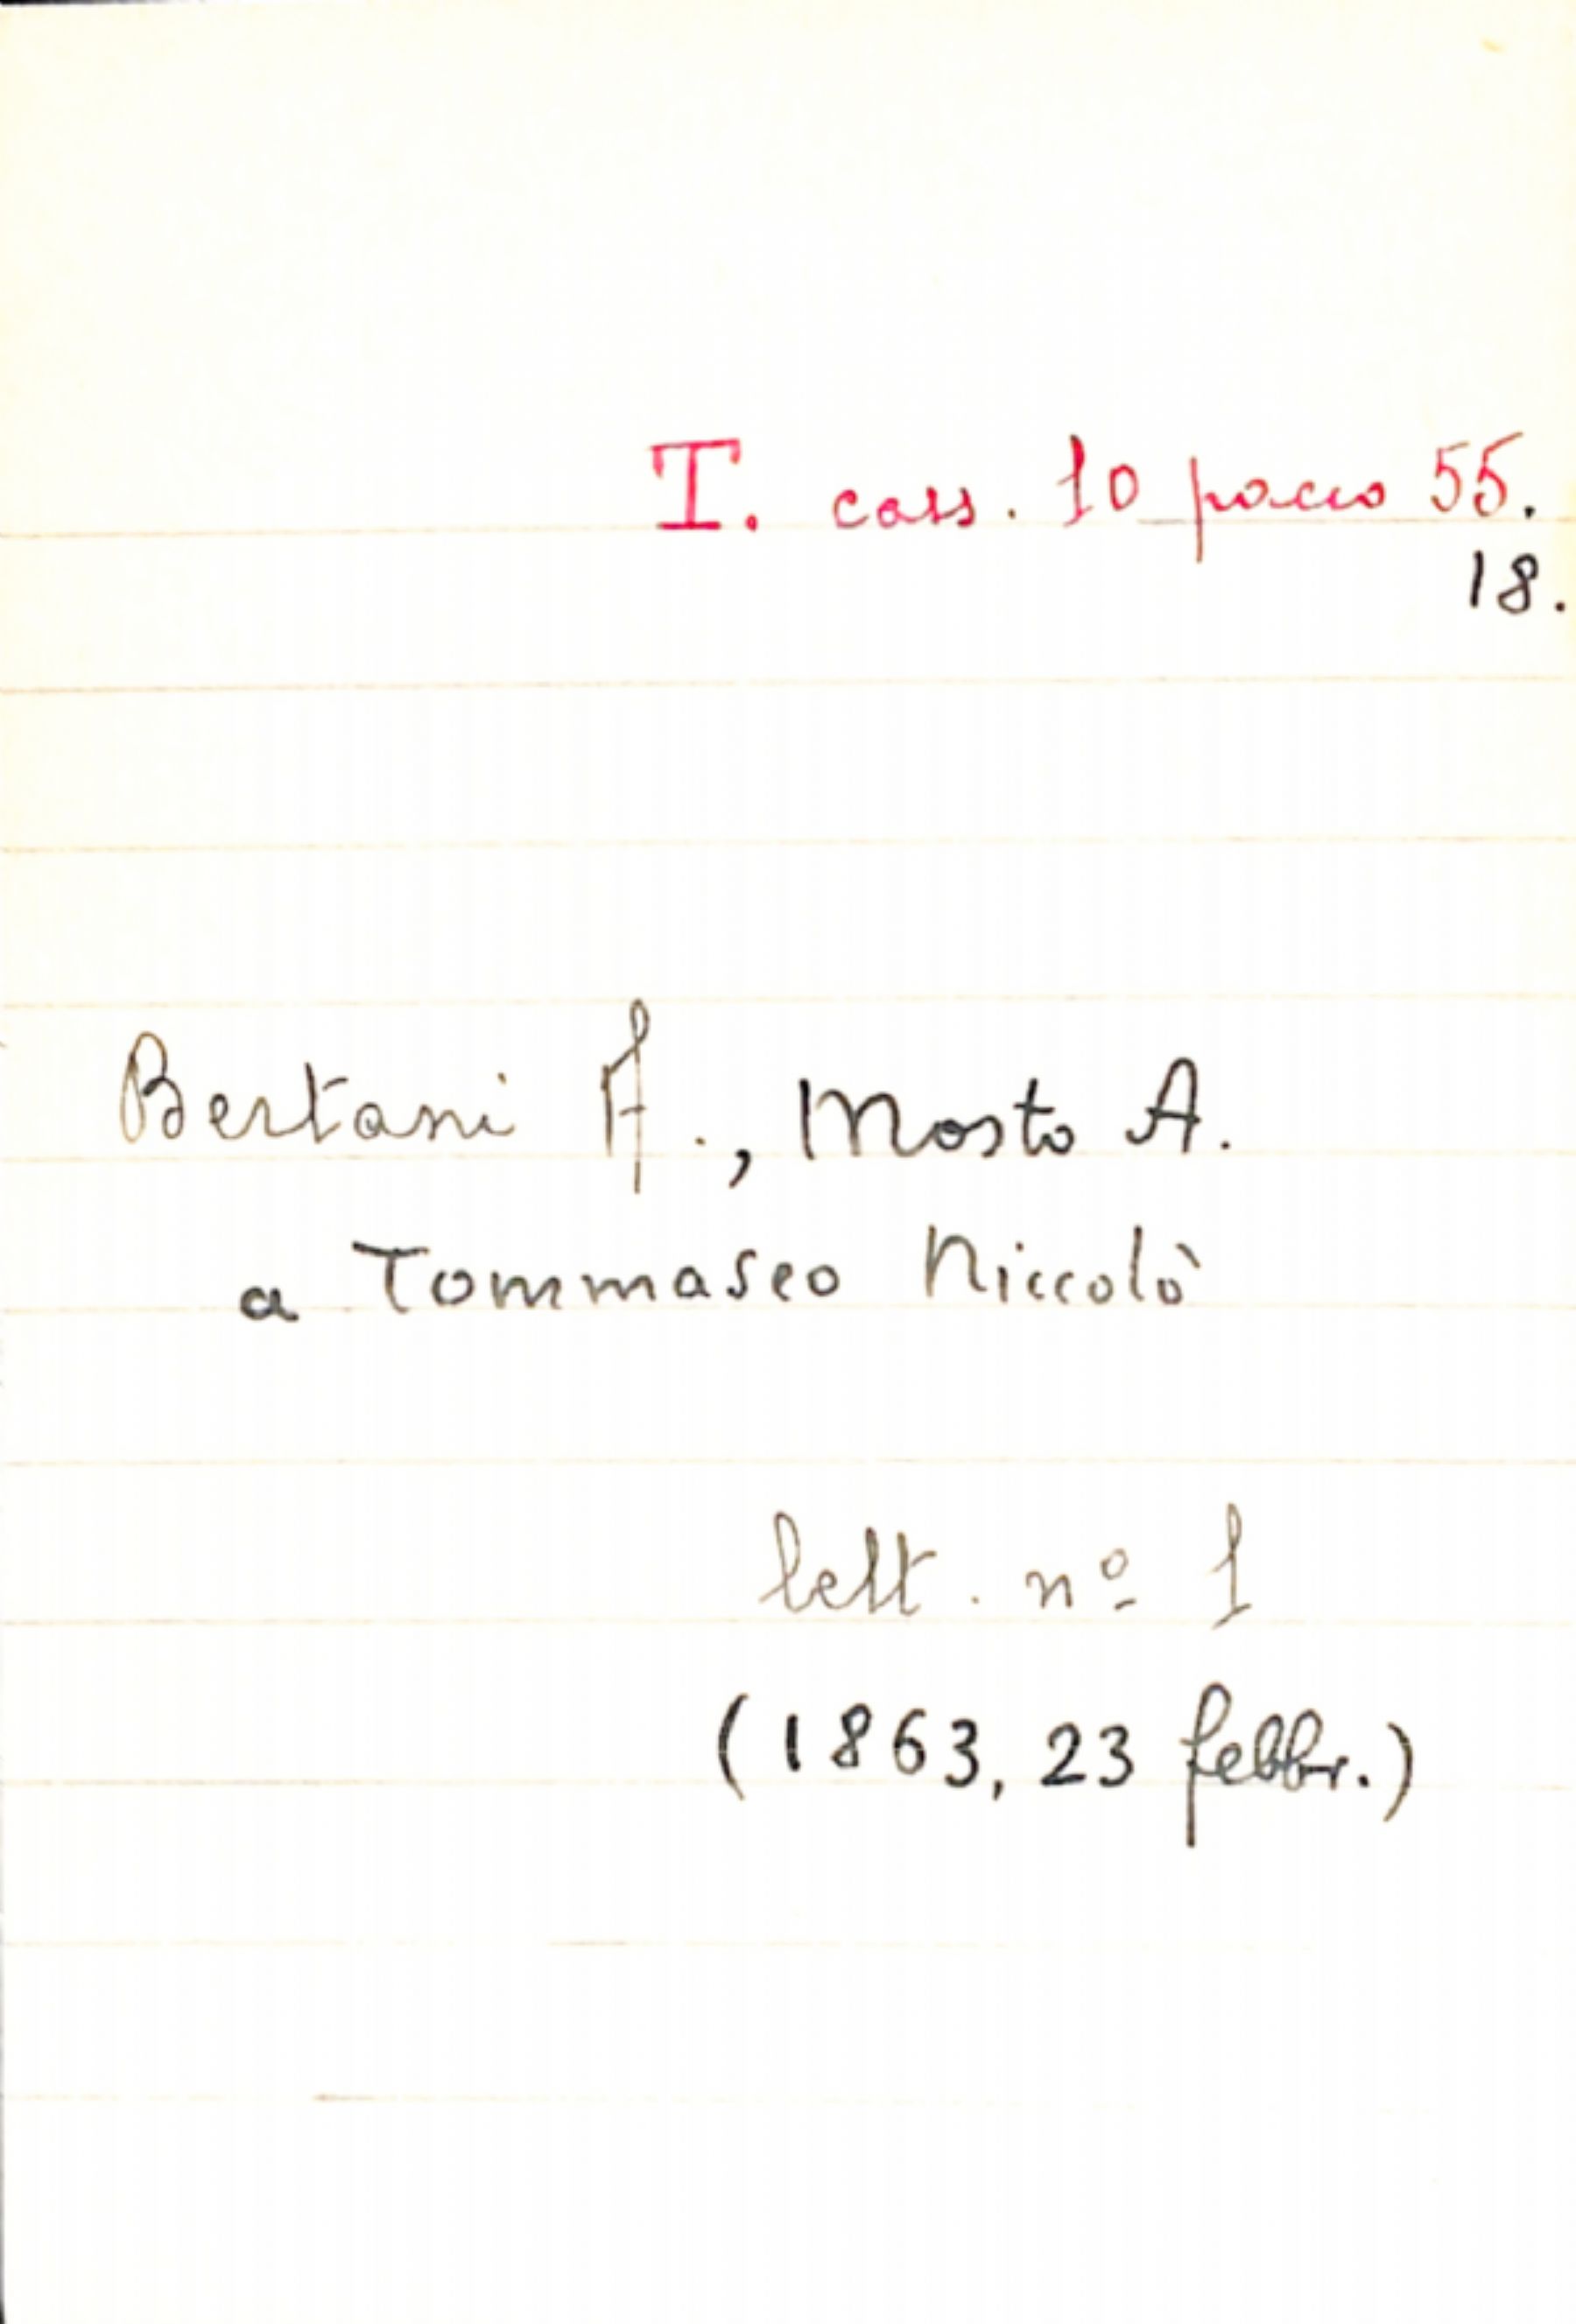 T. cass. 10 pacco 55.
18.
Bertani A., Mosto A.
a Tommaseo Niccolò
lett. nº 1
(1863, 23 febbr.)